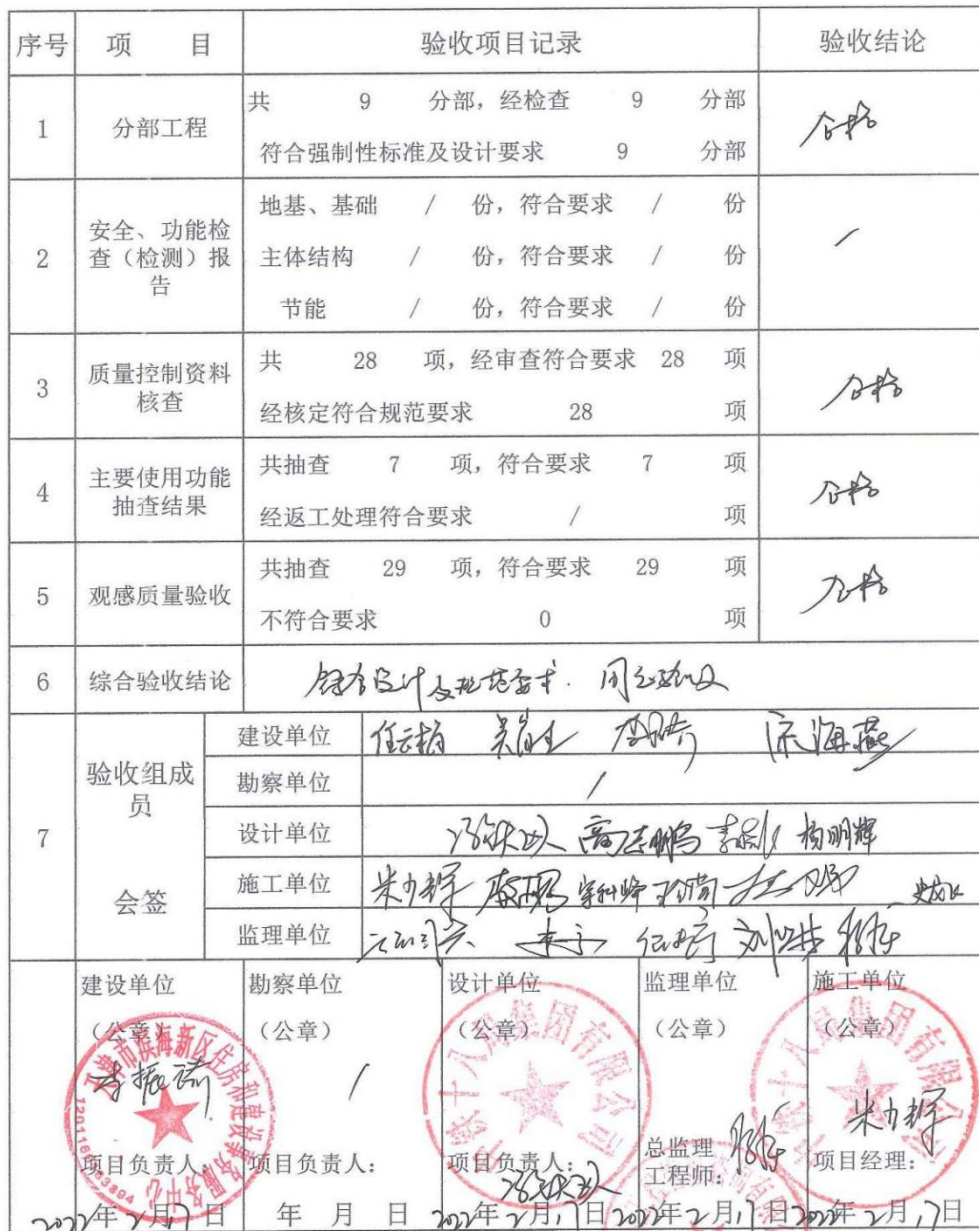 序号 项目 验收项目记录 验收结论
1 分部工程 共 9 分部，经检查 9 分部 合格
符合强制性标准及设计要求 9 分部
2 安全、功能检查（检测）报告 地基、基础 / 份，符合要求 / 份 /
主体结构 / 份，符合要求 / 份
节能 / 份，符合要求 / 份
3 质量控制资料核查 共 28 项，经审查符合要求 28 项 合格
经核定符合规范要求 28 项
4 主要使用功能抽查结果 共抽查 7 项，符合要求 7 项 合格
经返工处理符合要求 / 项
5 观感质量验收 共抽查 29 项，符合要求 29 项 合格
不符合要求 0 项
6 综合验收结论 符合设计及规范要求. 同意验收
7 验收组成员 会签
建设单位 海燕
勘察单位 /
设计单位 杨明辉
施工单位
监理单位
建设单位 勘察单位 设计单位 监理单位 施工单位
（公章） （公章） （公章） （公章） （公章）
天津市滨海新区住房和建设事务服务中心
李振 /
十八局集团有限公司
十八局集团有限公司
项目负责人： 项目负责人： 项目负责人： 总监理工程师： 项目经理：
2022年2月17日 年 月 日 2022年2月17日 2022年2月17日 2022年2月17日